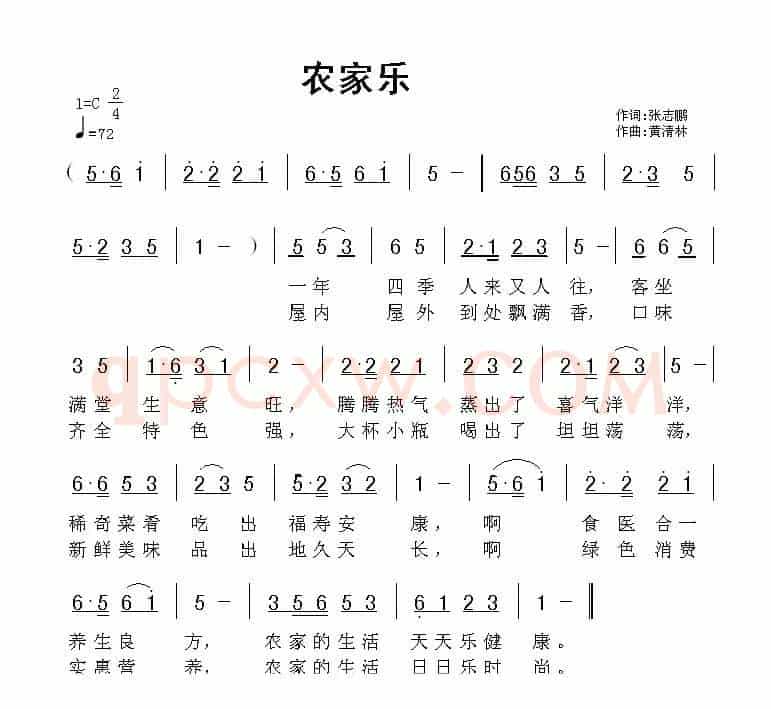 农家乐
1=C 2/4
♩=72
作词:张志鹏
作曲:黄清林
( 5·6 1 | 2·2 2 1 | 6·5 6 1 | 5 - | 656 3 5 | 2·3 5 |
5·2 3 5 | 1 - ) | 5 5 3 | 6 5 | 2·1 2 3 | 5 - | 6 6 5 |
一年 四季 人来又人 往, 客坐
屋内 屋外 到处飘满 香, 口味
3 5 | 1·6 3 1 | 2 - | 2·2 2 1 | 2 3 2 | 2·1 2 3 | 5 - |
满堂 生意 旺, 腾腾热气 蒸出了 喜气洋 洋,
齐全 特色 强, 大杯小瓶 喝出了 坦坦荡 荡,
qpcxw.COM
6·6 5 3 | 2 3 5 | 5·2 3 2 | 1 - | 5·6 1 | 2·2 2 1 |
稀奇菜肴 吃出 福寿安 康, 啊 食医合一
新鲜美味 品出 地久天 长, 啊 绿色消费
6·5 6 1 | 5 - | 3 5 6 5 3 | 6 1 2 3 | 1 - ‖
养生良 方, 农家的生活 天天乐健 康。
实惠营 养, 农家的生活 日日乐时 尚。